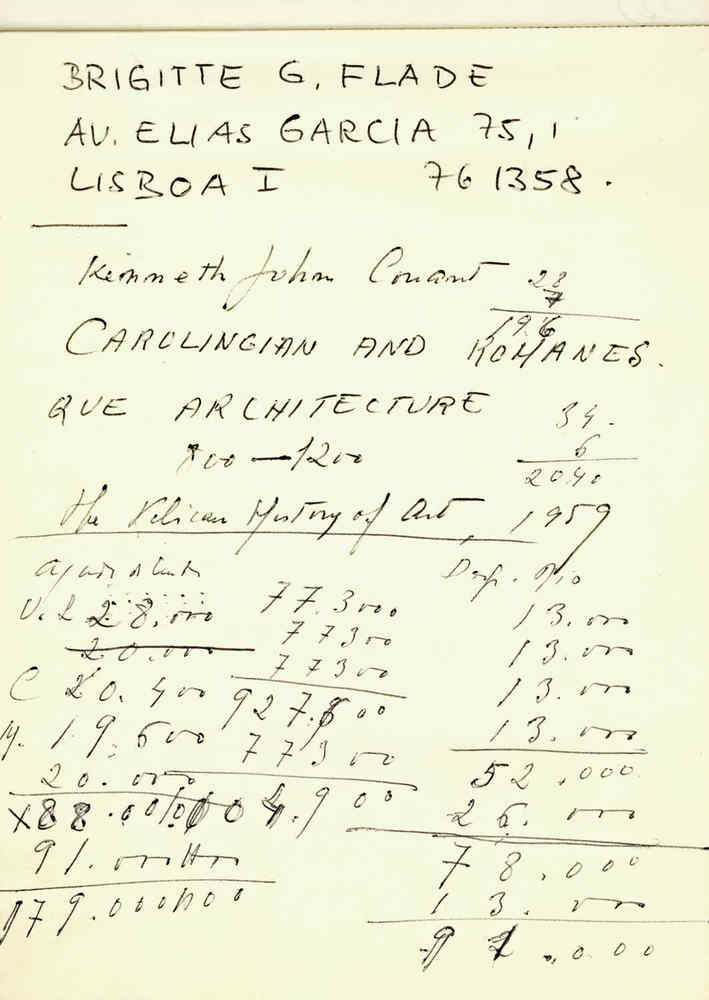 BRIGITTE G. FLADE
AV. ELIAS GARCIA 75, 1
LISBOA I 761358.
Kenneth John Conant
28
7
196
CAROLINGIAN AND ROMANES.
QUE ARCHITECTURE
34.
6
2040
800 — 1200
the Pelican History of Art, 1959
V. L 28.000
20.000
C 20.400
M. 19.600
20.000
X 88.00
91.000
179.000
77.3000
77300
77300
927.600
77300
1004.900
13.000
13.000
13.000
13.000
52.000
26.000
78.000
13.000
91.000